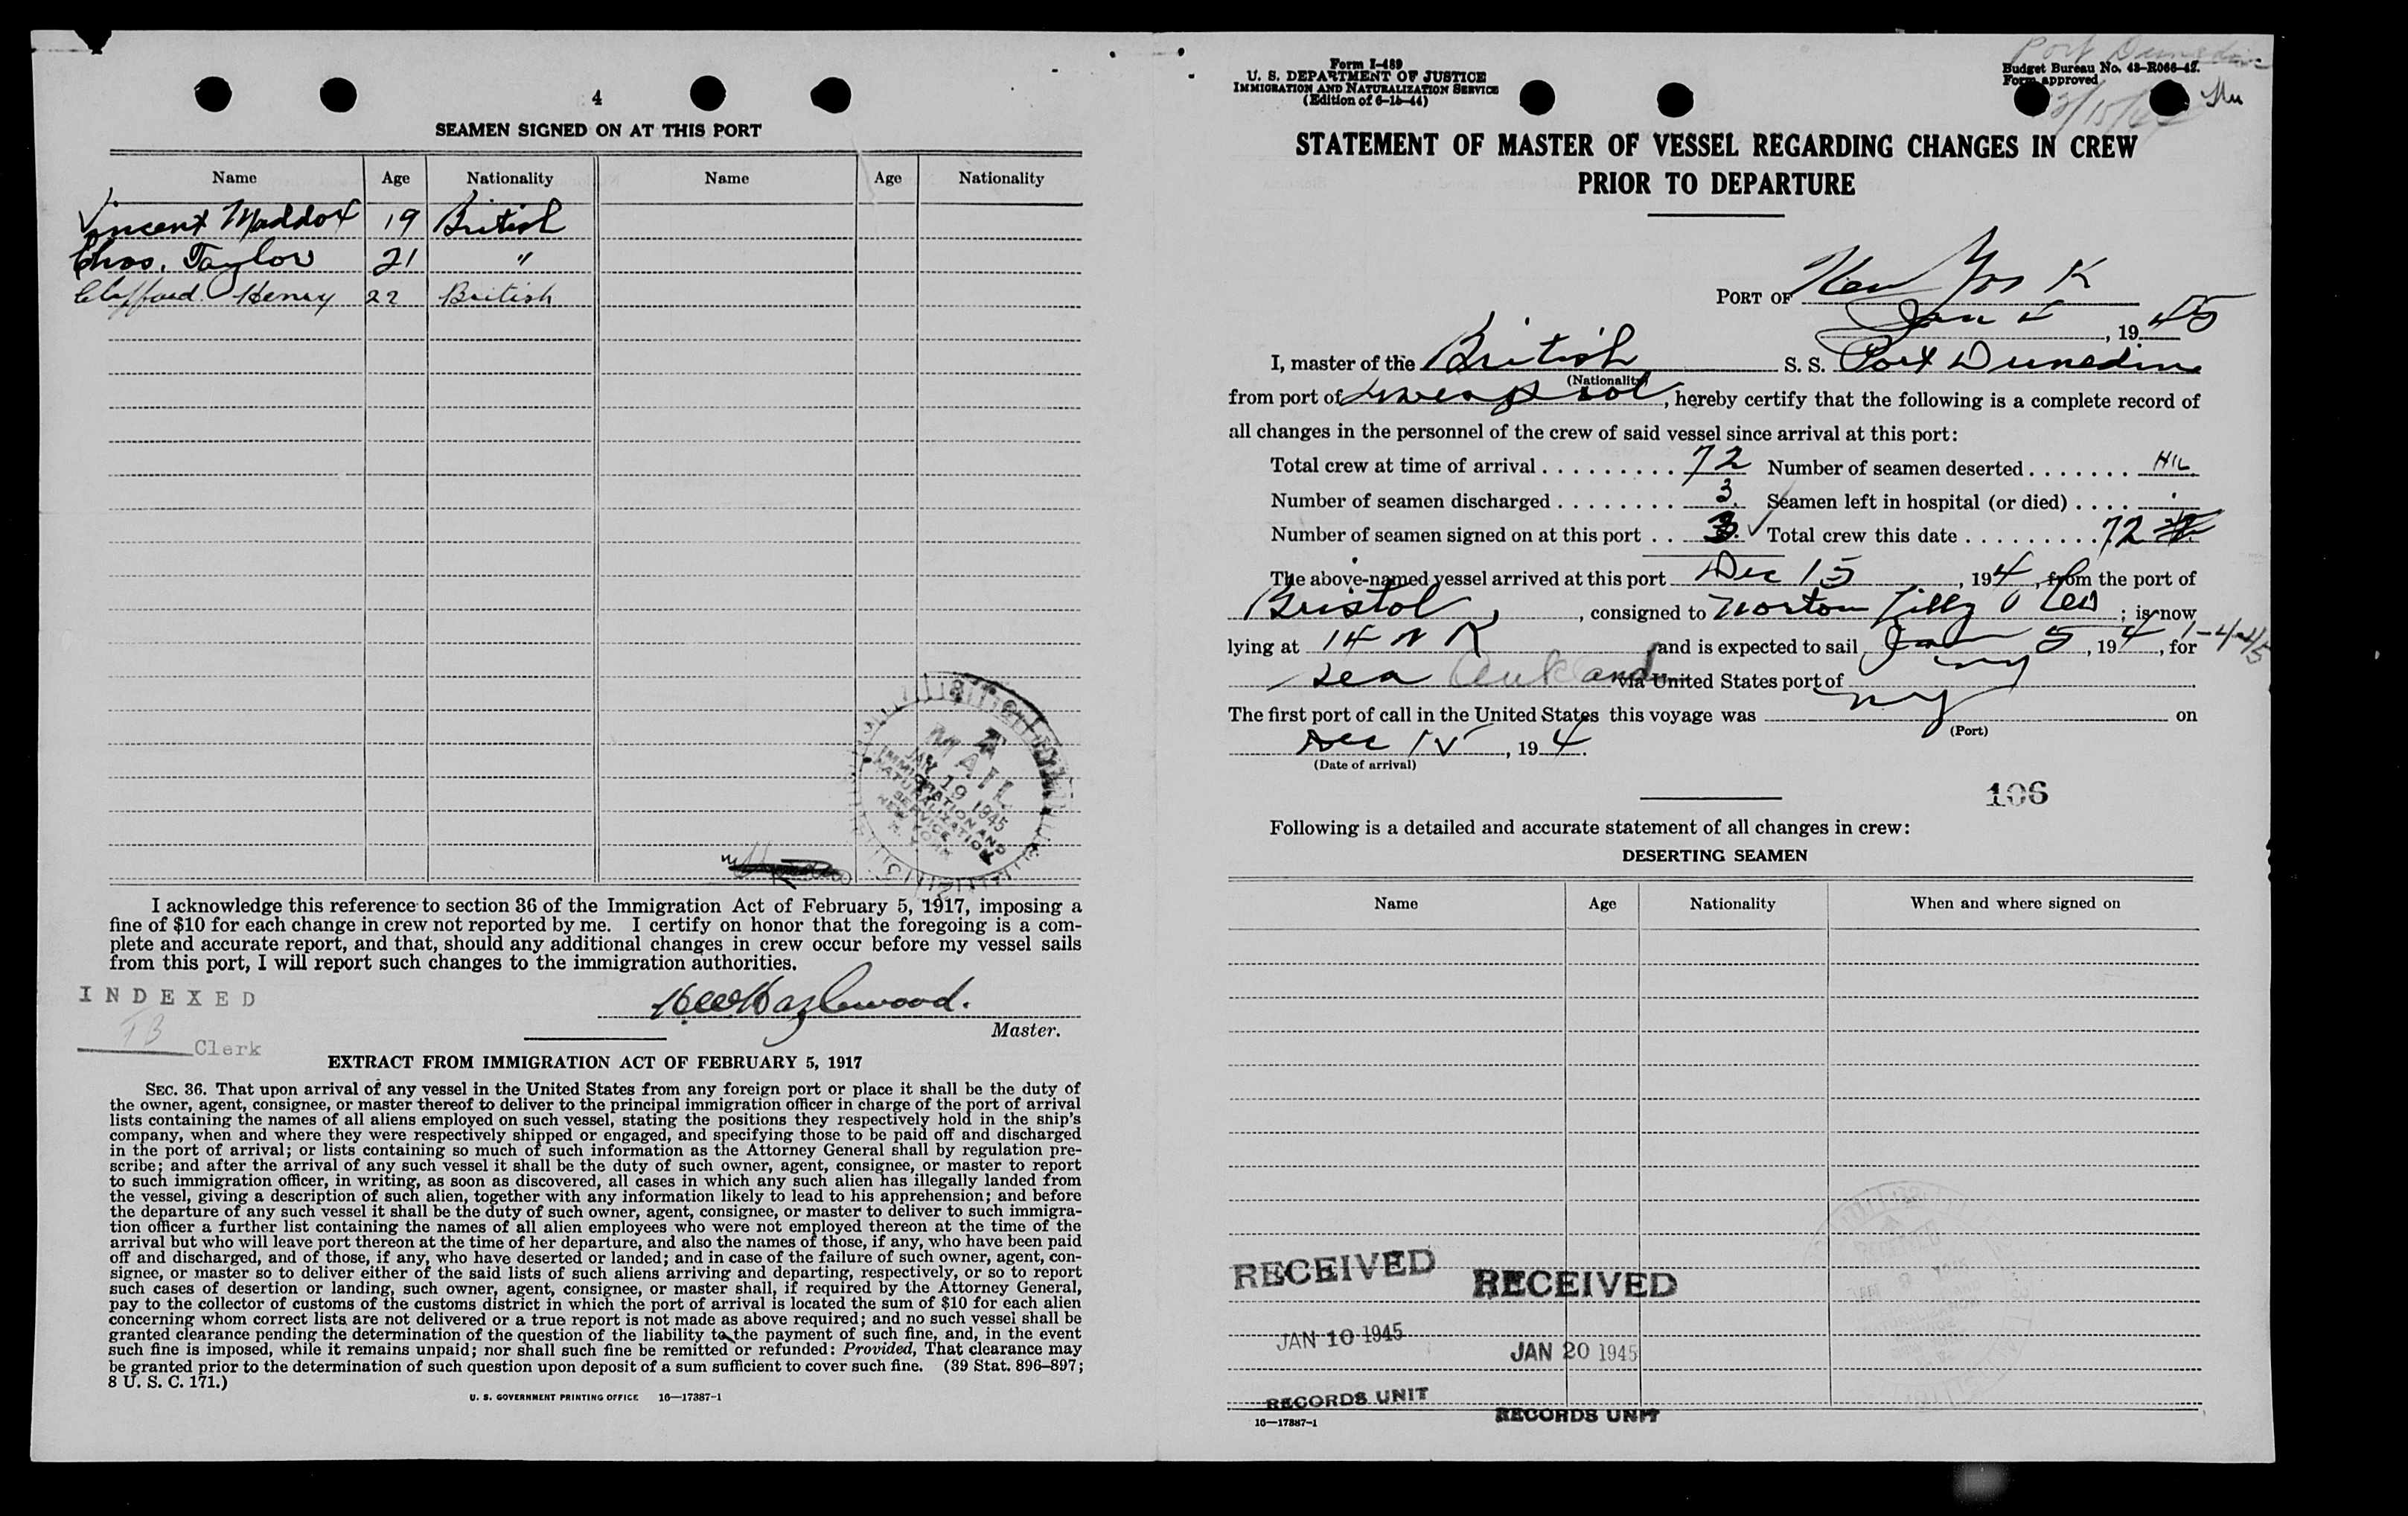 4
SEAMEN SIGNED ON AT THIS PORT
Name Age Nationality Name Age Nationality
Vincent Maddox 19 British
Chas. Taylor 21 "
Clifford Henry 22 British
A
MAIL
JAN 19 1945
IMMIGRATION AND
NATURALIZATION
SERVICE
NEW YORK
N. Y.
I acknowledge this reference to section 36 of the Immigration Act of February 5, 1917, imposing a
fine of $10 for each change in crew not reported by me. I certify on honor that the foregoing is a com-
plete and accurate report, and that, should any additional changes in crew occur before my vessel sails
from this port, I will report such changes to the immigration authorities.
INDEXED
Hazlewood.
Master.
TB Clerk
EXTRACT FROM IMMIGRATION ACT OF FEBRUARY 5, 1917
SEC. 36. That upon arrival of any vessel in the United States from any foreign port or place it shall be the duty of
the owner, agent, consignee, or master thereof to deliver to the principal immigration officer in charge of the port of arrival
lists containing the names of all aliens employed on such vessel, stating the positions they respectively hold in the ship's
company, when and where they were respectively shipped or engaged, and specifying those to be paid off and discharged
in the port of arrival; or lists containing so much of such information as the Attorney General shall by regulation pre-
scribe; and after the arrival of any such vessel it shall be the duty of such owner, agent, consignee, or master to report
to such immigration officer, in writing, as soon as discovered, all cases in which any such alien has illegally landed from
the vessel, giving a description of such alien, together with any information likely to lead to his apprehension; and before
the departure of any such vessel it shall be the duty of such owner, agent, consignee, or master to deliver to such immigra-
tion officer a further list containing the names of all alien employees who were not employed thereon at the time of the
arrival but who will leave port thereon at the time of her departure, and also the names of those, if any, who have been paid
off and discharged, and of those, if any, who have deserted or landed; and in case of the failure of such owner, agent, con-
signee, or master so to deliver either of the said lists of such aliens arriving and departing, respectively, or so to report
such cases of desertion or landing, such owner, agent, consignee, or master shall, if required by the Attorney General,
pay to the collector of customs of the customs district in which the port of arrival is located the sum of $10 for each alien
concerning whom correct lists are not delivered or a true report is not made as above required; and no such vessel shall be
granted clearance pending the determination of the question of the liability to the payment of such fine, and, in the event
such fine is imposed, while it remains unpaid; nor shall such fine be remitted or refunded: Provided, That clearance may
be granted prior to the determination of such question upon deposit of a sum sufficient to cover such fine. (39 Stat. 896–897;
8 U. S. C. 171.)
U. S. GOVERNMENT PRINTING OFFICE 16—17387-1
Port Dunedin
Form I-489
U. S. DEPARTMENT OF JUSTICE
IMMIGRATION AND NATURALIZATION SERVICE
(Edition of 6-15-44)
Budget Bureau No. 43-R066-42.
Form approved
STATEMENT OF MASTER OF VESSEL REGARDING CHANGES IN CREW
PRIOR TO DEPARTURE
PORT OF New York
Jan 4, 1945
I, master of the British S. S. Port Dunedin
(Nationality)
from port of Liverpool, hereby certify that the following is a complete record of
all changes in the personnel of the crew of said vessel since arrival at this port:
Total crew at time of arrival 72 Number of seamen deserted NIL
Number of seamen discharged 3 Seamen left in hospital (or died)
Number of seamen signed on at this port 3 ✓ Total crew this date 72
The above-named vessel arrived at this port Dec 15, 194, from the port of
Bristol, consigned to Norton Lilly & Co; is now
lying at 14 N R and is expected to sail Jan 5, 194, for 1-4-45
Sea Aukland via United States port of ny
The first port of call in the United States this voyage was ny on
(Port)
Dec 15, 194.
(Date of arrival)
106
Following is a detailed and accurate statement of all changes in crew:
DESERTING SEAMEN
Name Age Nationality When and where signed on
RECEIVED RECEIVED
JAN 10 1945 JAN 20 1945
RECORDS UNIT RECORDS UNIT
16—17387-1